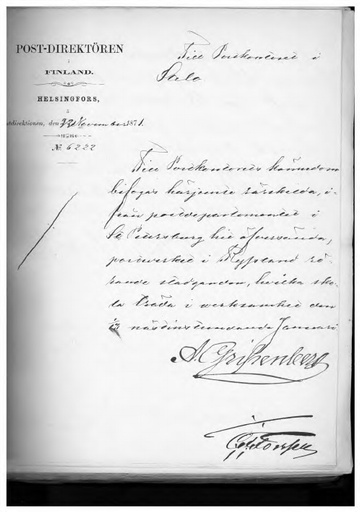 POST-DIREKTÖREN
i
FINLAND.
HELSINGFORS,
Postdirektionen, den 22 November 1871.
№ 6222
Till Postkontoret i
Till Postkontorets kännedom
bifogas härjemte särskilda, i-
från postdepartementet i
St Petersburg hit öfversända,
postverket i Ryssland rö-
rande stadganden, hvilka sko-
la träda i verksamhet den
nästinstundande Januari
A Gripenberg